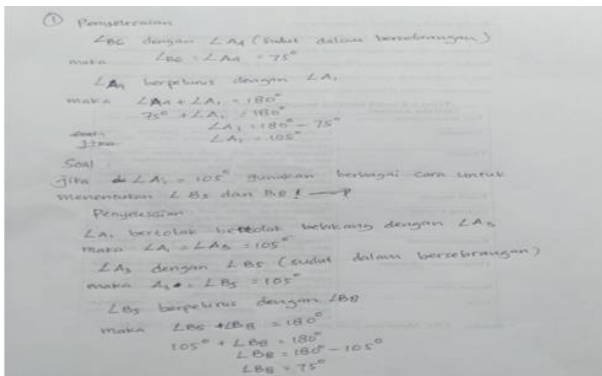 ① Penyelesaian
∠B6 dengan ∠A4 (sudut dalam bersebrangan)
maka ∠B6 = ∠A4 = 75°
∠A4 berpelurus dengan ∠A1
maka ∠A4 + ∠A1 = 180°
75° + ∠A1 = 180°
∠A1 = 180° - 75°
∠A1 = 105°
Jika
Soal
Jika ∠A1 = 105° gunakan berbagai cara untuk
menentukan ∠B5 dan B8!
Penyelesaian
∠A1 bertolak belakang dengan ∠A3
maka ∠A1 = ∠A3 = 105°
∠A3 dengan ∠B5 (sudut dalam bersebrangan)
maka A3 = ∠B5 = 105°
∠B5 berpelurus dengan ∠B8
maka ∠B5 + ∠B8 = 180°
105° + ∠B8 = 180°
∠B8 = 180° - 105°
∠B8 = 75°